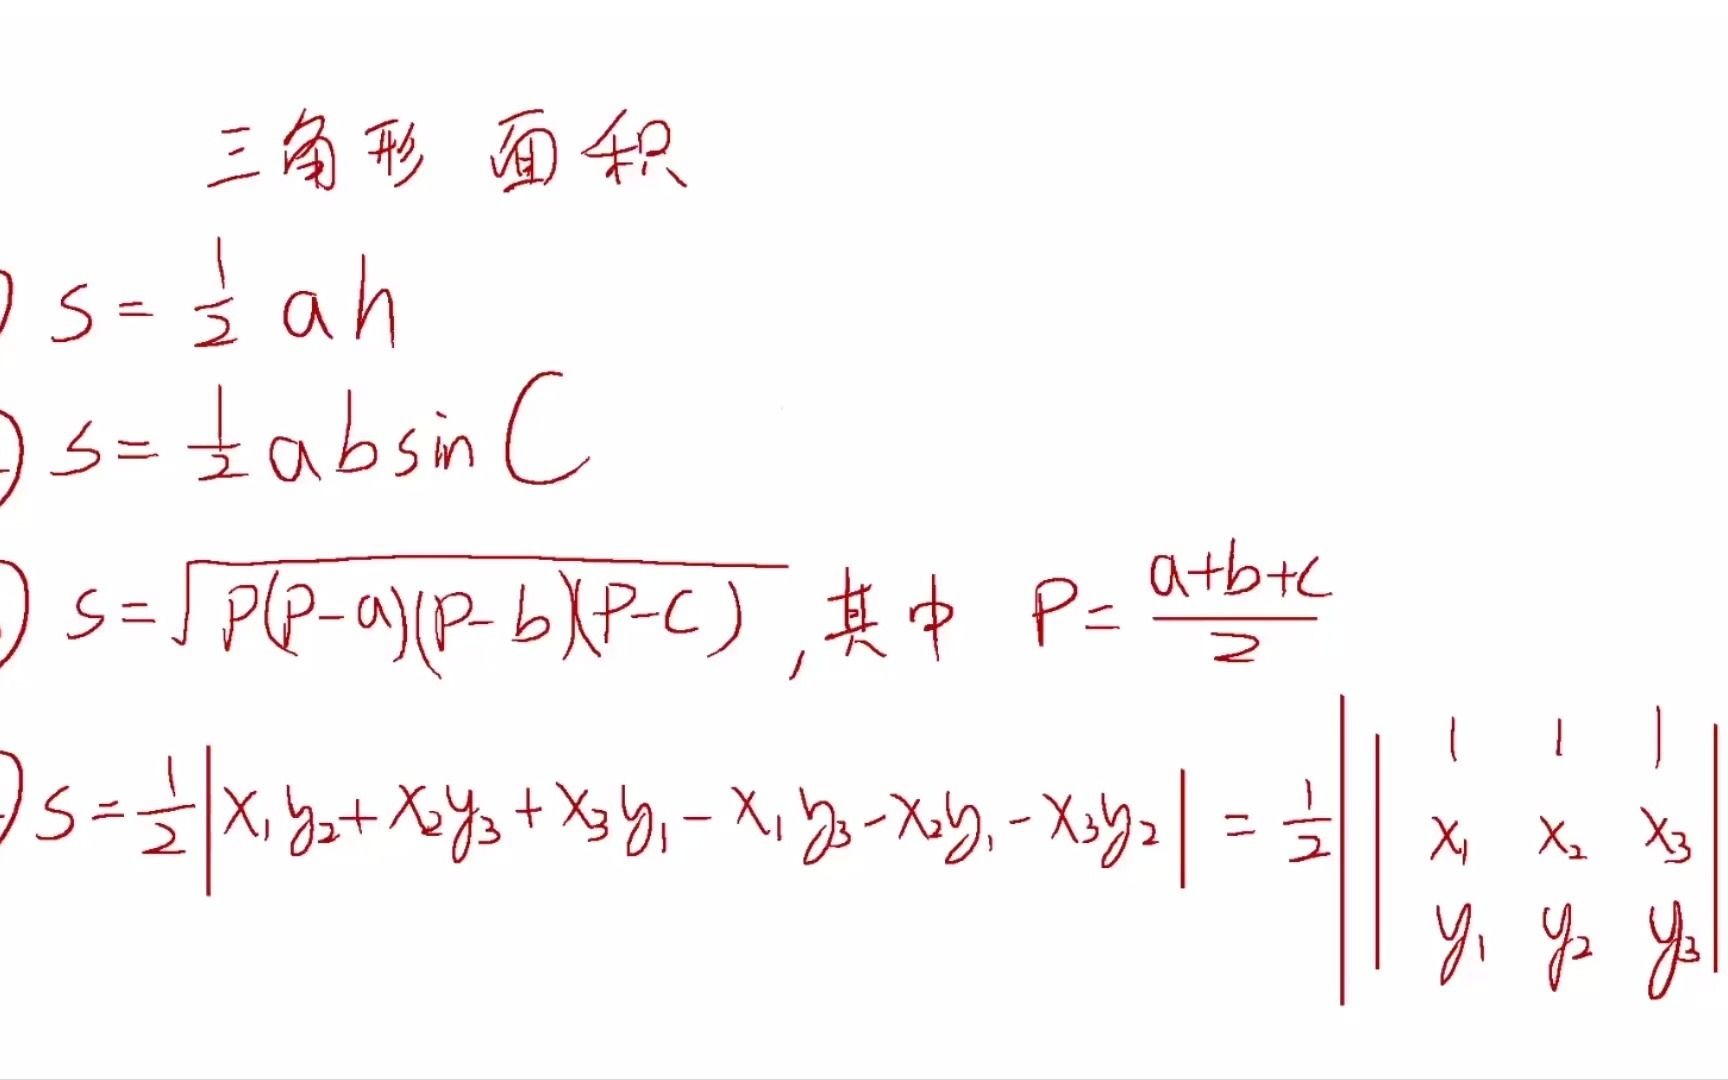 三角形 面积
S = 1/2 ah
S = 1/2 ab sin C
S = √(P(P-a)(P-b)(P-c)) , 其中 P = (a+b+c)/2
S = 1/2 |x₁y₂ + x₂y₃ + x₃y₁ - x₁y₃ - x₂y₁ - x₃y₂| = 1/2 | | 1 1 1
x₁ x₂ x₃
y₁ y₂ y₃ |